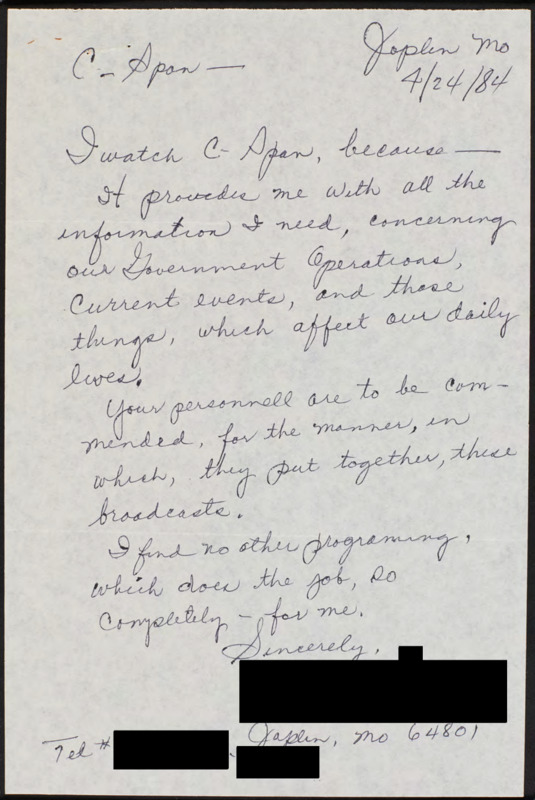 Joplin Mo
C-Span —
4/24/84
I watch C-Span, because —
It provides me with all the
information I need, concerning
our Government Operations,
Current events, and those
things, which affect our daily
lives.
Your personnell are to be com-
mended, for the manner, in
which, they put together, these
broadcasts.
I find no other programing,
which does the job, so
completely - for me.
Sincerely,
Joplin, Mo 64801
Tel #